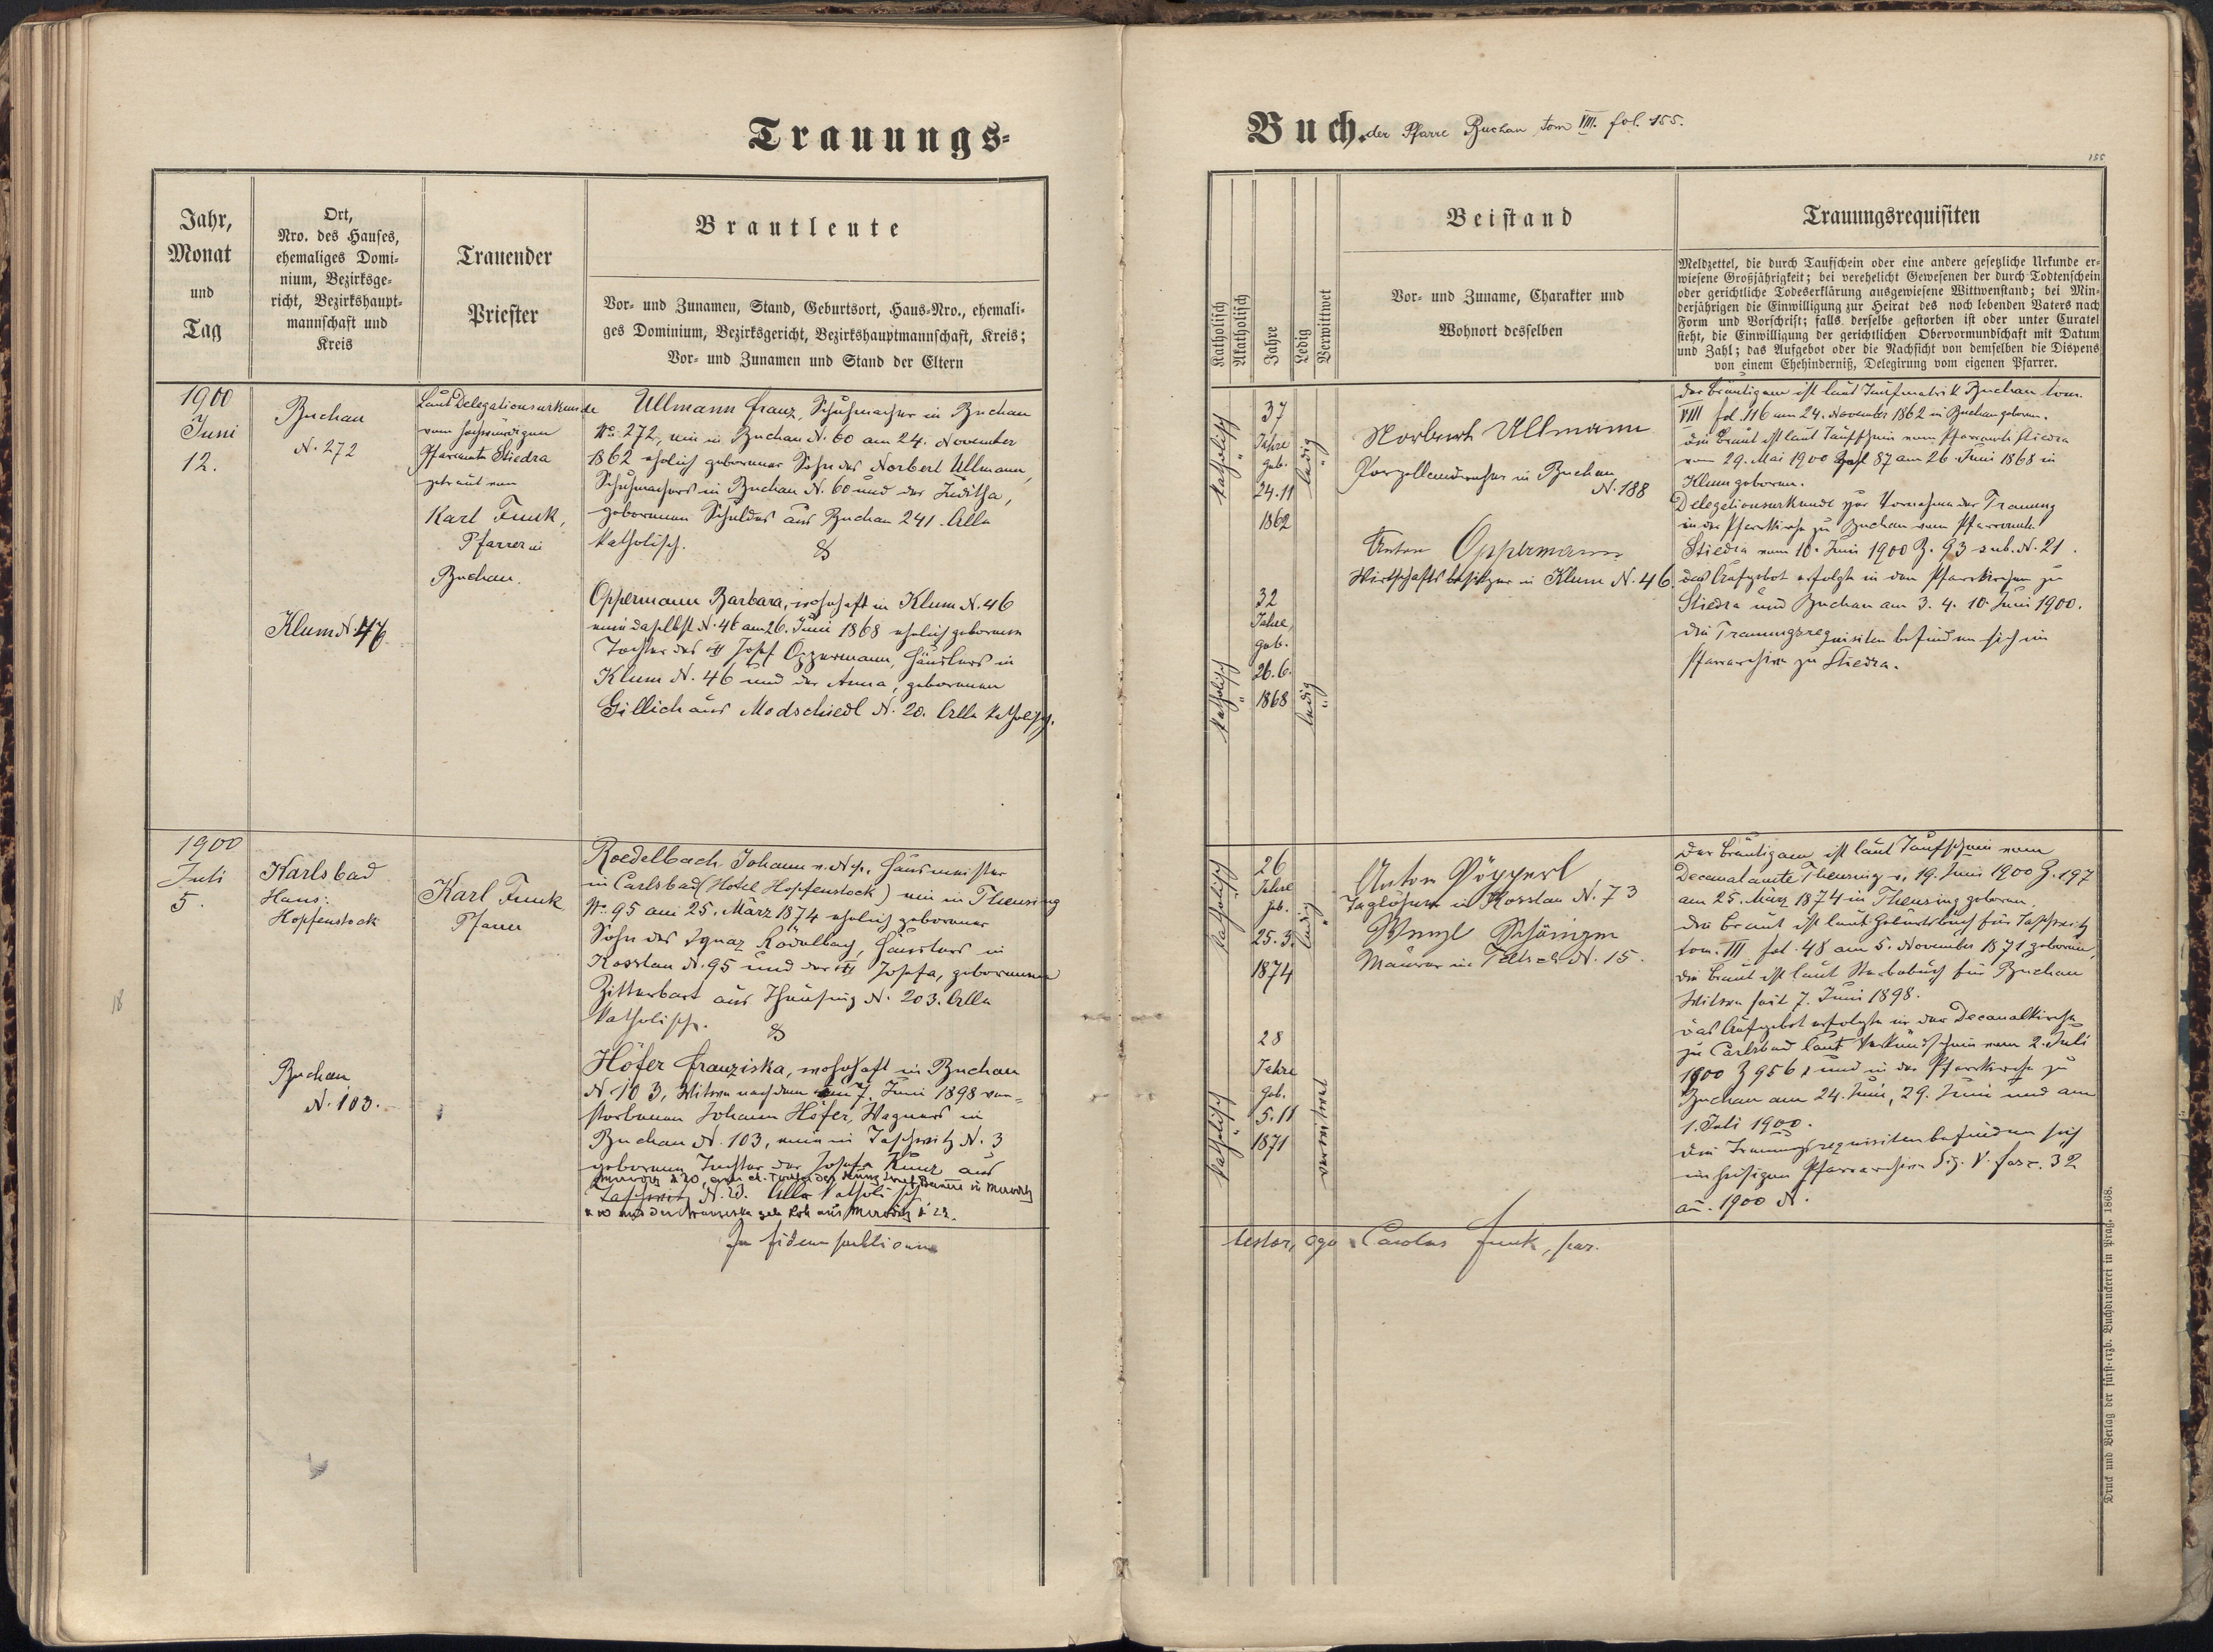 Trauungs-
Buch. der Pfarre Buchau tom VIII. fol. 155.
155
Jahr,
Monat
und
Tag
Ort,
Nro. des Hauses,
ehemaliges Domi-
nium, Bezirksge-
richt, Bezirkshaupt-
mannschaft und
Kreis
Trauender
Priester
Brautleute
Vor- und Zunamen, Stand, Geburtsort, Haus-Nro., ehemali-
ges Dominium, Bezirksgericht, Bezirkshauptmannschaft, Kreis;
Vor- und Zunamen und Stand der Eltern
Katholisch
Akatholisch
Jahre
Ledig
Verwittwet
Beistand
Vor- und Zuname, Charakter und
Wohnort desselben
Trauungsrequisiten
Meldzettel, die durch Taufschein oder eine andere gesetzliche Urkunde er-
wiesene Großjährigkeit; bei verehelicht Gewesenen der durch Todtenschein
oder gerichtliche Todeserklärung ausgewiesene Wittwenstand; bei Min-
derjährigen die Einwilligung zur Heirat des noch lebenden Vaters nach
Form und Vorschrift; falls derselbe gestorben ist oder unter Curatel
steht, die Einwilligung der gerichtlichen Obervormundschaft mit Datum
und Zahl; das Aufgebot oder die Nachsicht von demselben die Dispens
von einem Ehehinderniß, Delegirung vom eigenen Pfarrer.
1900
Juni
12.
Buchau
N. 272
Klum N. 46
Laut Delegationsurkunde
vom hochwürdigen
Pfarramte Stiedra
getraut von
Karl Funk,
Pfarrer in
Buchau.
Ullmann Franz, Schuhmacher in Buchau
No. 272, ein in Buchau N. 60 am 24. November
1862 ehelich geborener Sohn des Norbert Ullmann,
Schuhmachers in Buchau N. 60 und der Juditha,
geborenen Schuldes aus Buchau 241. Alle
katholisch.
&
Oppermann Barbara, wohnhaft in Klum N. 46
eine daselbst N. 46 am 26. Juni 1868 ehelich geborene
Tochter des Josef Oppermann, Häuslers in
Klum N. 46 und der Anna, geborenen
Gillich aus Modschiedl N. 20. Alle katholisch.
katholisch
37
Jahre
geb.
24.11
1862
ledig
katholisch
32
Jahre,
geb.
26.6.
1868
ledig
Norbert Ullmann
Porzellandreher in Buchau
N. 188
Anton Oppermann
Wirtschaftsbesitzer in Klum N. 46.
Der Bräutigam ist laut Taufmatrik Buchau tom.
VIII fol. 116 am 24. November 1862 in Buchau geboren.
Die Braut ist laut Taufschein vom Pfarramte Stiedra
vom 29. Mai 1900 Zahl 87 am 26. Juni 1868 in
Klum geboren.
Delegationsurkunde zur Vornahme der Trauung
in der Pfarrkirche zu Buchau vom Pfarramte
Stiedra vom 10. Juni 1900 Z. 93 sub. N. 21.
Das Aufgebot erfolgte in den Pfarrkirchen zu
Stiedra und Buchau am 3. 4. 10. Juni 1900.
Die Trauungsrequisiten befinden sich im
Pfarrarchive zu Stiedra.
1900
Juli
5.
Karlsbad
Haus:
Hopfenstock
Buchau
N. 103.
Karl Funk
Pfarrer
Roedelbach Johann Hausmeister
in Carlsbad (Hotel Hopfenstock) ein in Theusing
No. 95 am 25. März 1874 ehelich geborener
Sohn des Ignaz Rödelbach, Häuslers in
Kosslau N. 95 und der Josefa, geborenen
Zitterbart aus Theusing N. 203. Alle
katholisch.
&
Höfer Franziska, wohnhaft in Buchau
N. 103, Witwe nach dem am 7. Juni 1898 ver-
storbenen Johann Höfer, Wagners in
Buchau N. 103, eine in Taschwitz N. 3
geborene Tochter der Josefa Kunz aus
Taschwitz N. Alle katholisch
In fidem
18
katholisch
26
Jahre
geb.
25.3.
1874
ledig
katholisch
28
Jahre
geb.
5.11
1871
verwitwet
Anton Pöpperl
Taglöhner in Kosslau N. 73
Wenzl
Maurer in N. 15.
Der Bräutigam ist laut Taufschein vom
Decanalamte Theusing v. 19. Juni 1900 Z. 197
am 25. März 1874 in Theusing geboren.
Die Braut ist laut Geburtsbuch für Taschwitz
tom. III fol. 48 am 5. November 1871 geboren,
die Braut ist laut Sterbebuch für Buchau
Witwe seit 7. Juni 1898.
Das Aufgebot erfolgte in der Decanalkirche
zu Carlsbad laut Verkündschein vom 2. Juli
1900 Z 956 und in der Pfarrkirche zu
Buchau am 24. Juni, 29. Juni und am
1. Juli 1900.
Die Trauungsrequisiten befinden sich
im hiesigen Pfarrarchive Sig. V. fasc. 32
an. 1900 N.
testor, ego Carolus Funk, par.
Druck und Verlag der fürst-erzb. Buchdruckerei in Prag. 1868.